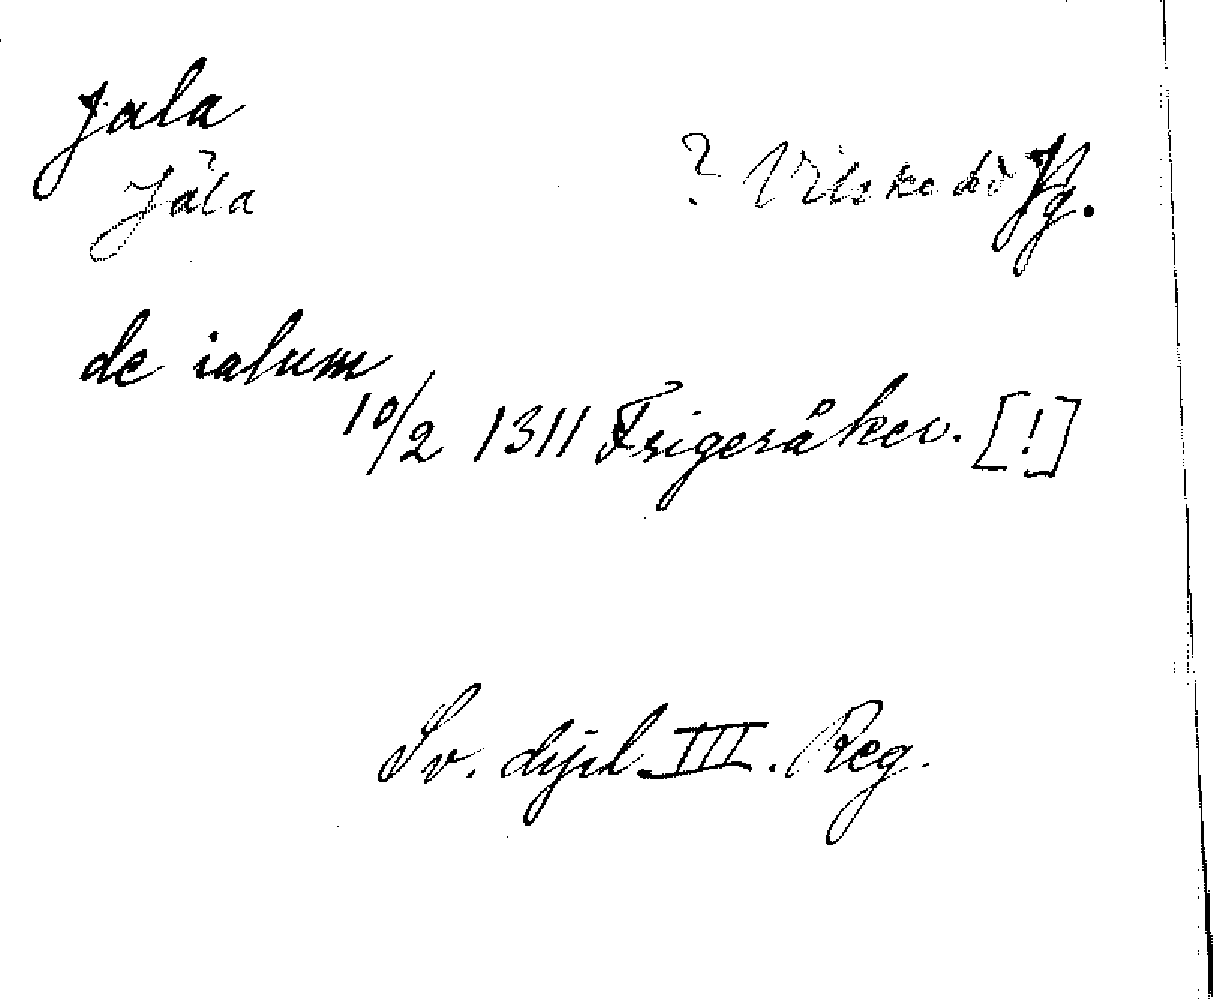 Jala
Jåla
? Vilske hd Vg.
de ialum
10/2 1311 Frigeråker. [!]
Sv. dipl. III. Reg.